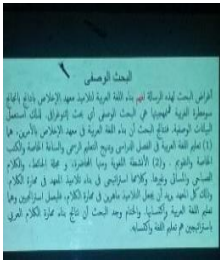 البحث الوصفى
أغراض البحث لهذه الرسالة لفهم بناء اللغة العربية لتلاميذ معهد الإخلاص
سومطرة الغربية فمنهجيتها هي البحث الوصفي أي بحث إثنوغرافي. لذلك استعمل
البيانات الوصفية. فنتائج البحث أن بناء اللغة العربية في معهد الإخلاص بالأمرين، هما
(1) تعليم اللغة العربية في الفصل الدراسي ومنهج التعليم الرسمي والساعة الخاصة والكتب
الخاصة والتقويم . و (2) الأنشطة اللغوية ومنها المحاضرة، و مجلة الحائط، والكلام
الصباحي والمسائى وغيرها. وكلاهما استراتيجي في بناء تلاميذ المعهد في مهارة الكلام.
وذلك كل الجهد يريد أن يجعل التلاميذ ماهرين في مهارة الكلام، فليصل استراتيجيين وهما
تعليم اللغة العربية واكتسابها. والختام وجد البحث أن نتائج بناء مهارة الكلام العربي
باستراتيجيين هم تعليم اللغة واكتسابه.